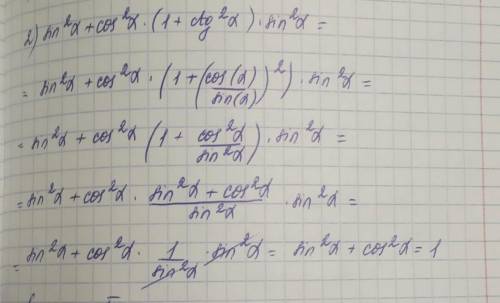 2) sin²α + cos²α · (1 + ctg²α) · sin²α =
= sin²α + cos²α · (1 + (cos(α)/sin(α))²) · sin²α =
= sin²α + cos²α (1 + cos²α/sin²α) · sin²α =
= sin²α + cos²α · (sin²α + cos²α)/sin²α · sin²α =
= sin²α + cos²α · 1/sin²α · sin²α = sin²α + cos²α = 1